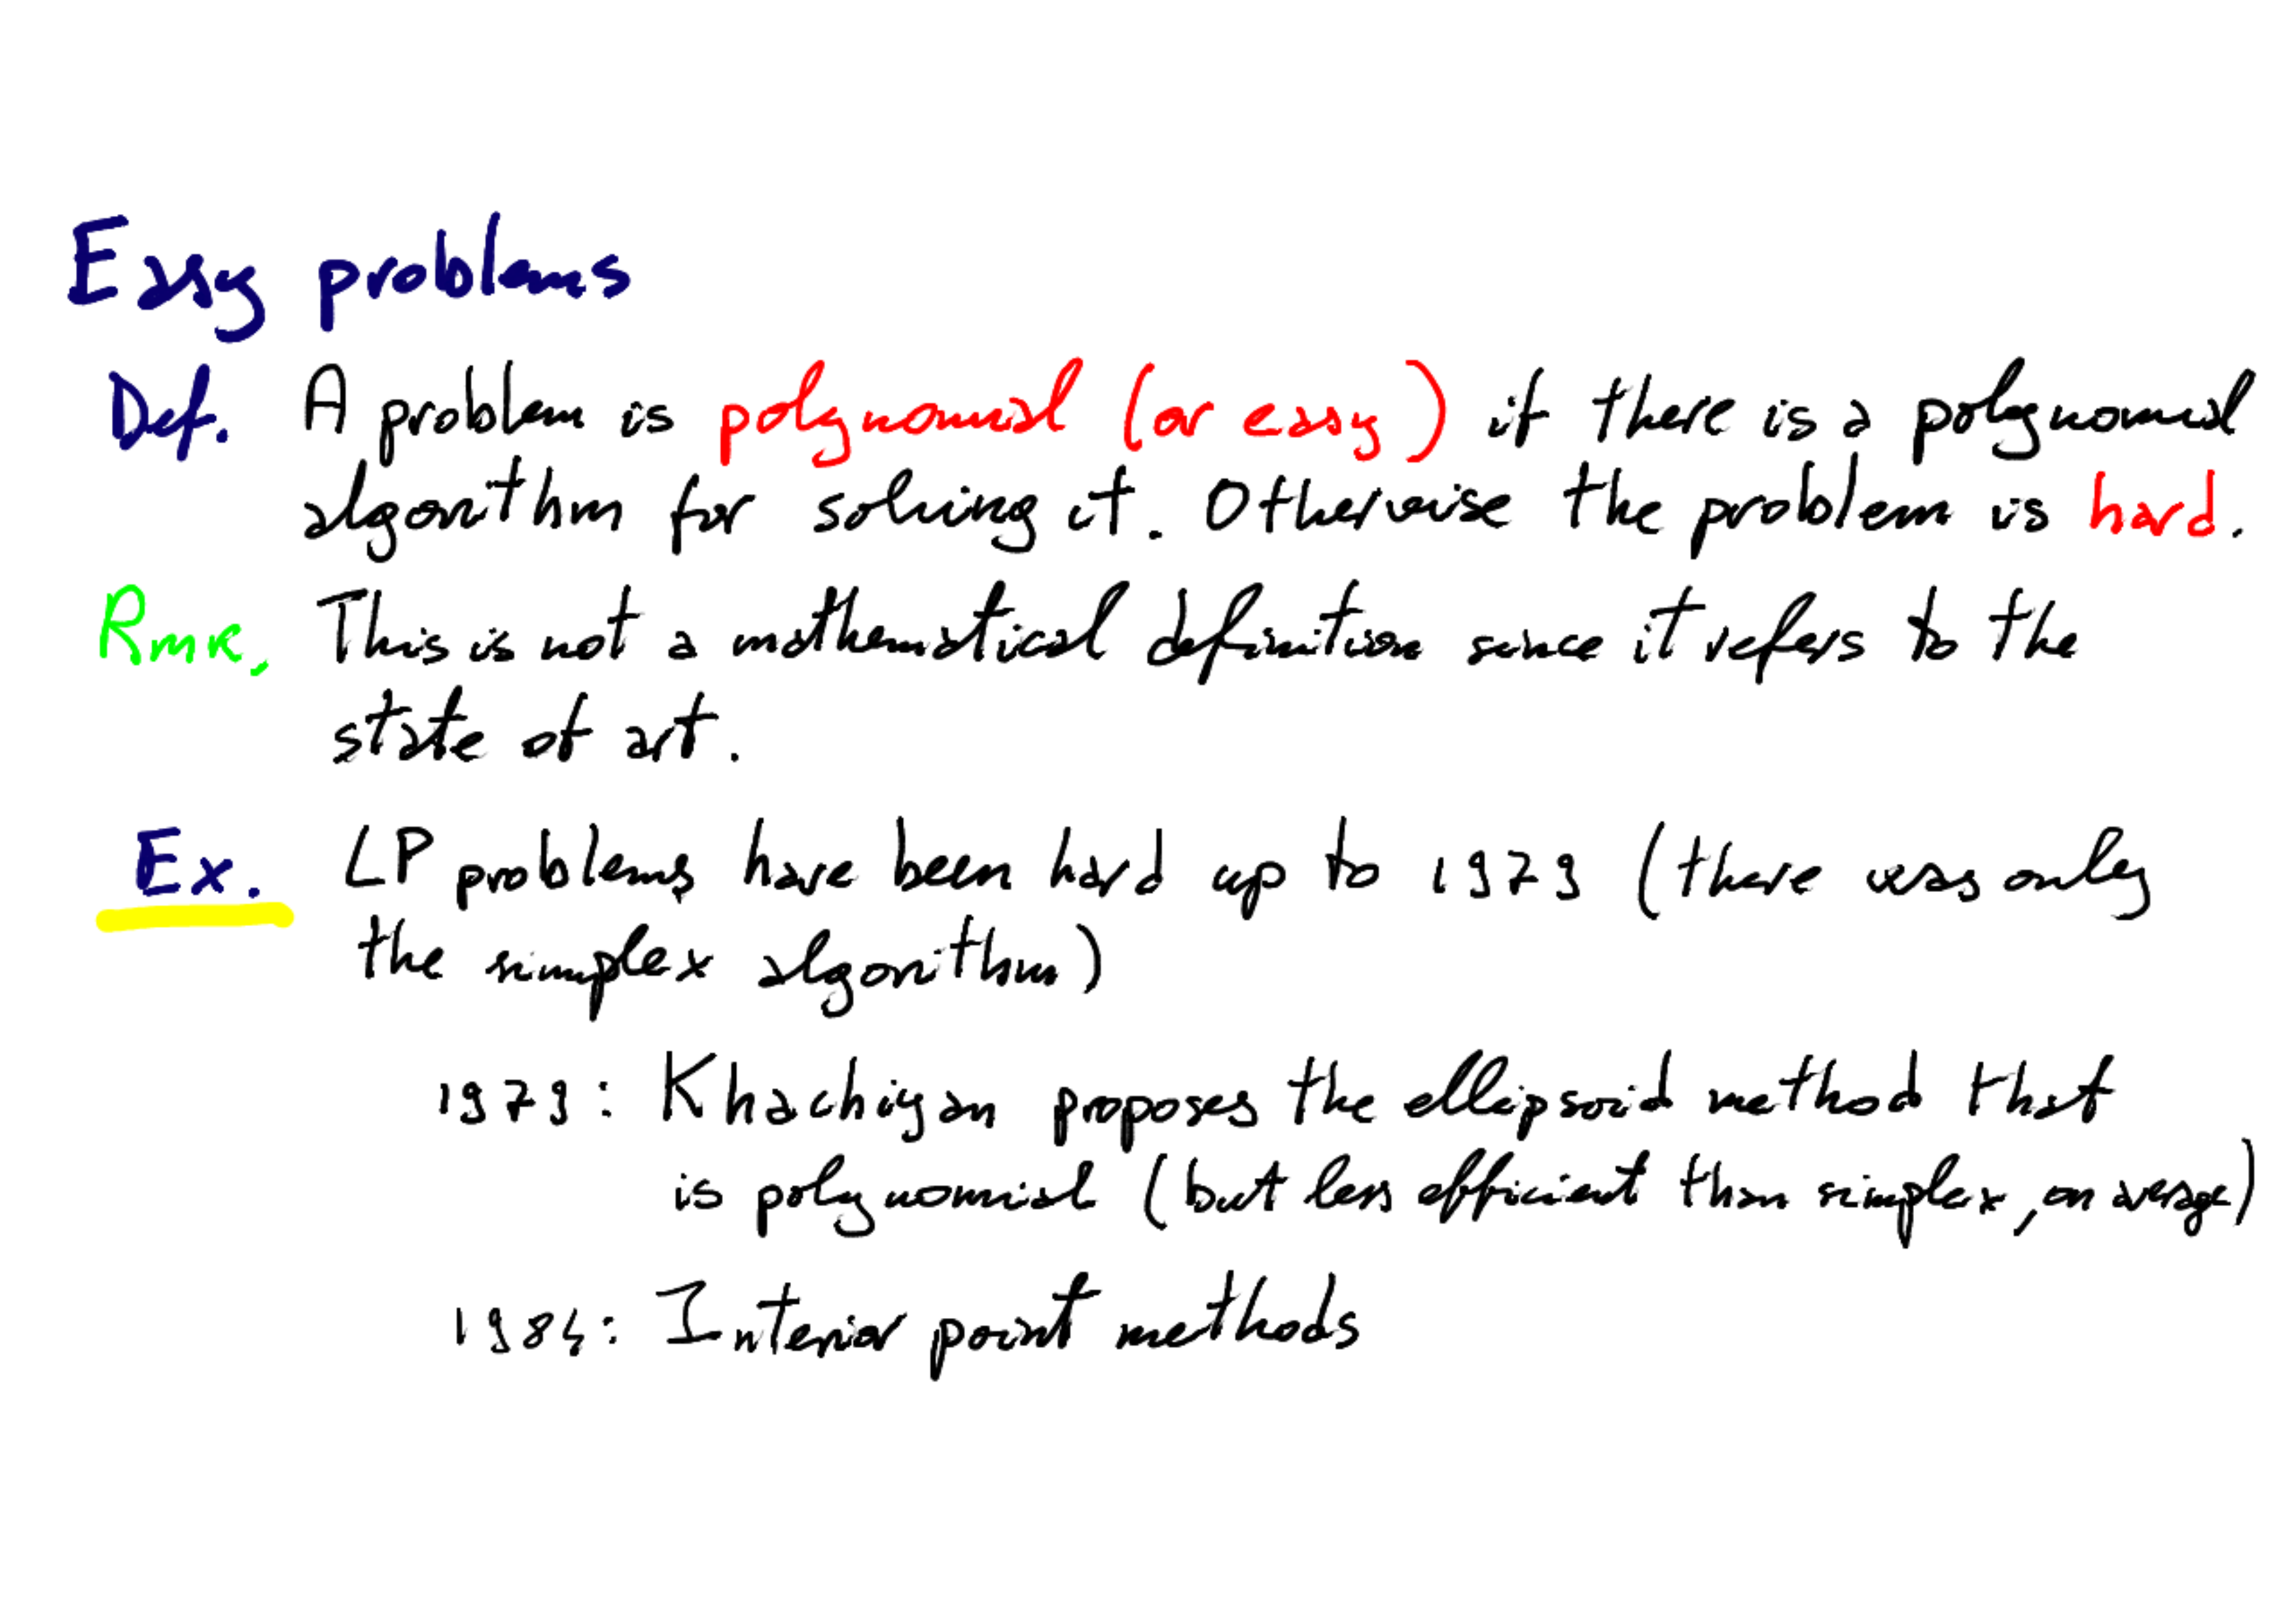 Easy problems
Def. A problem is polynomial (or easy) if there is a polynomial
algorithm for solving it. Otherwise the problem is hard.
Rmk. This is not a mathematical definition since it refers to the
state of art.
Ex. LP problems have been hard up to 1979 (there was only
the simplex algorithm)
1979: Khachiyan proposes the ellipsoid method that
is polynomial (but less efficient than simplex, on average)
1984: Interior point methods